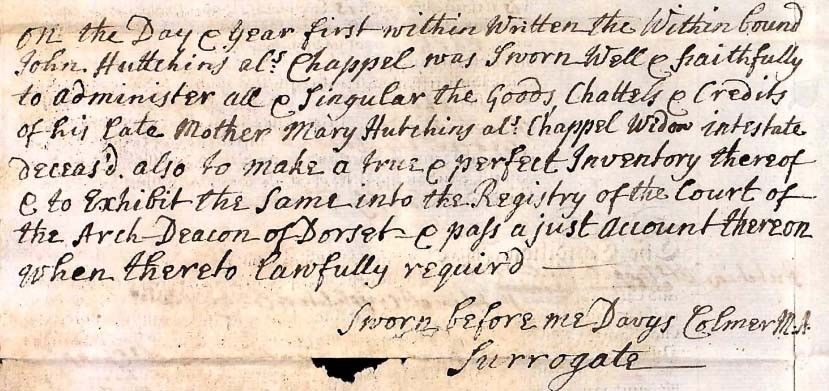 on the Day & Year first within Written the Within bound
John Huttchins als Chappel was Sworn Well & faithfully
to administer all & Singular the Goods, Chattels & Credits
of his Late Mother Mary Hutchins als Chappel Widow intestate
deceas'd. also to make a true & perfect Inventory thereof
& to Exhibit the Same into the Registry of the Court of
the Arch-Deacon of Dorset & pass a just account thereon
when thereto Lawfully requir'd
Sworn before me Davys Colmer M.A.
Surrogate